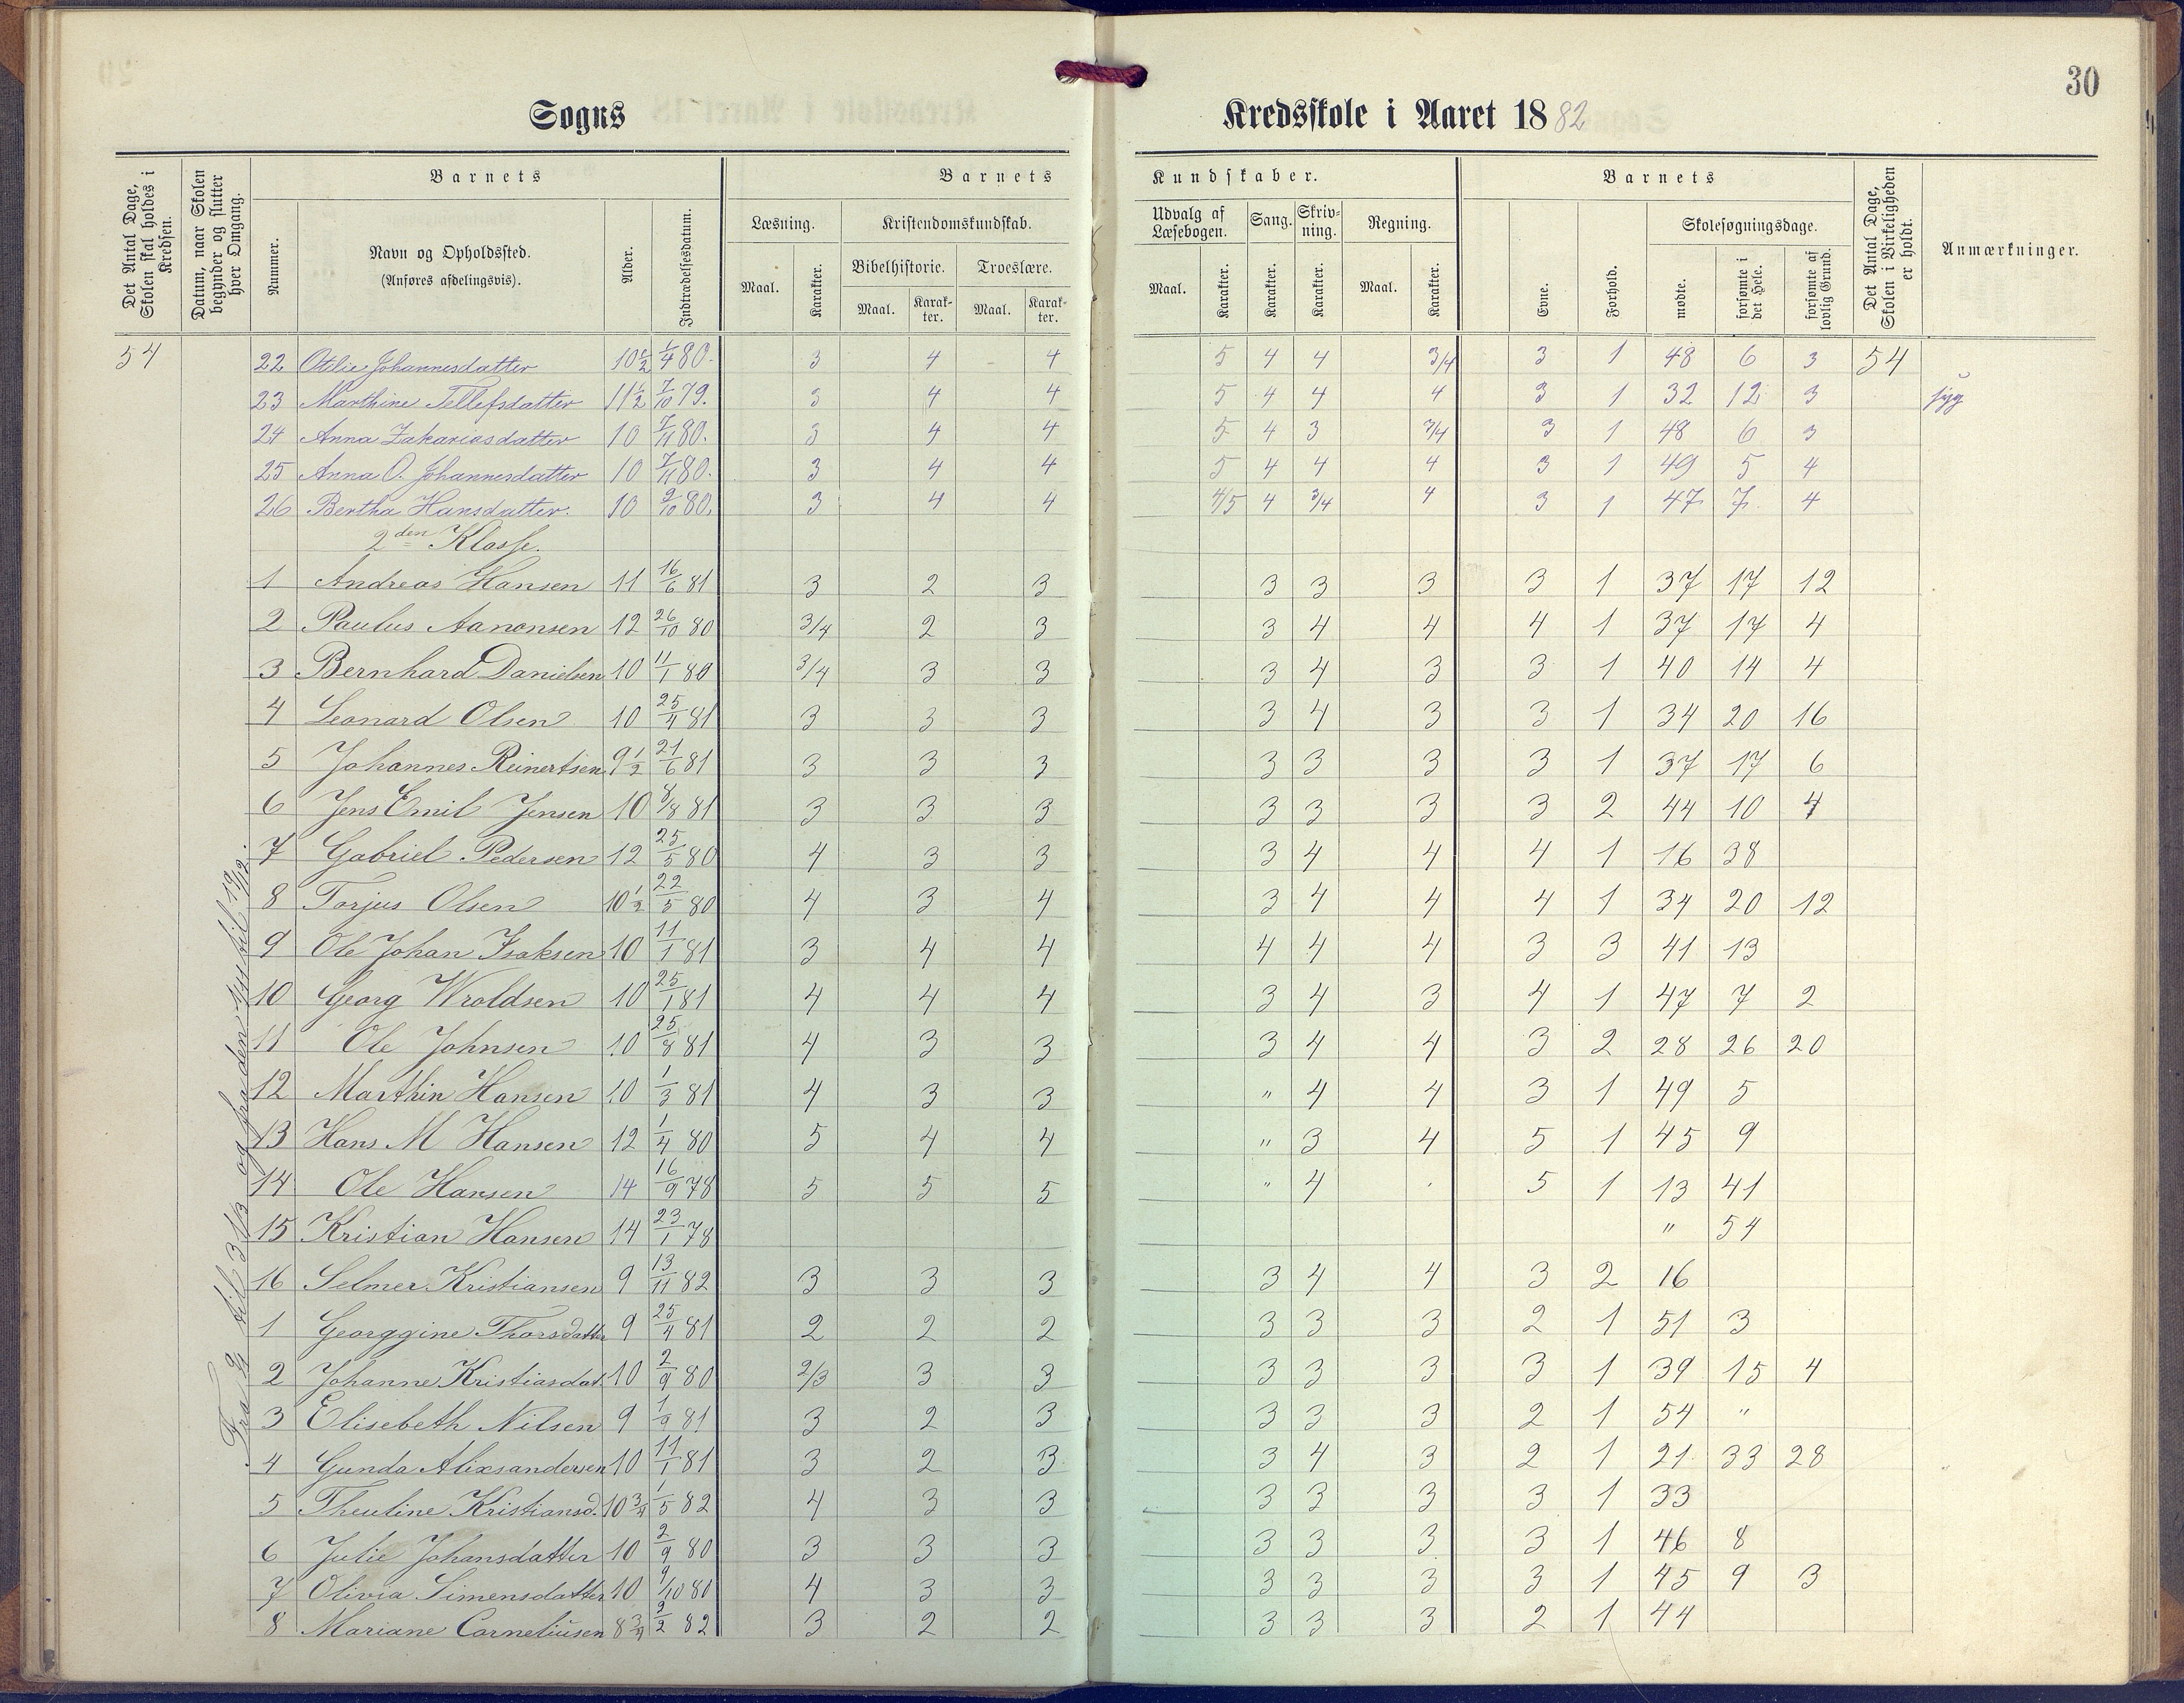 30
Sogns Kredsskole i Aaret 1882
Det Antal Dage, Skolen skal holdes i Kredsen.
Datum, naar Skolen begynder og slutter hver Omgang.
Barnets
Nummer.
Navn og Opholdssted.
(Anføres afdelingsvis).
Alder.
Indtrædelsesdatum.
Barnets Kundskaber.
Læsning.
Maal. Karakter.
Kristendomskundskab.
Bibelhistorie. Troeslære.
Maal. Karakter. Maal. Karakter.
Udvalg af Læsebogen.
Maal. Karakter.
Sang.
Karakter.
Skrivning.
Karakter.
Regning.
Maal. Karakter.
Barnets
Evne. Forhold.
Skolesøgningsdage.
mødte. forsømte i det Hele. forsømte af lovlig Grund.
Det Antal Dage, Skolen i Virkeligheden er holdt.
Anmærkninger.
54 22 Otelie Johannesdatter 10 1/2 1/4 80. 3 4 4 5 4 4 3/4 3 1 48 6 3 54
23 Marthine Tellefsdatter 11 1/2 7/10 79. 3 4 4 5 4 4 4 3 1 32 12 3 syg
24 Anna Zakariasdatter 10 7/11 80. 3 4 4 5 4 3 3/4 3 1 48 6 3
25 Anna O. Johannesdatter 10 7/11 80. 3 4 4 5 4 4 4 3 1 49 5 4
26 Bertha Hansdatter. 10 9/10 80. 3 4 4 4/5 4 3/4 4 3 1 47 7 4
2den Klasse.
1 Andreas Hansen 11 16/6 81 3 2 3 3 3 3 3 1 37 17 12
2 Paulus Aanonsen 12 26/10 80 3/4 2 3 3 4 4 4 1 37 17 4
3 Bernhard Danielsen 10 11/1 80 3/4 3 3 3 4 3 3 1 40 14 4
4 Leonard Olsen 10 25/4 81 3 3 3 3 4 3 3 1 34 20 16
5 Johannes Reinertsen 9 1/2 21/6 81 3 3 3 3 3 3 3 1 37 17 6
6 Jens Emil Jensen 10 8/8 81 3 3 3 3 3 3 3 2 44 10 4
7 Gabriel Pedersen 12 25/5 80 4 3 3 3 4 4 4 1 16 38
8 Torjus Olsen 10 1/2 22/5 80 4 3 4 3 4 4 4 1 34 20 12
9 Ole Johan Isaksen 10 11/1 81 3 4 4 4 4 4 3 3 41 13
10 Georg Wroldsen 10 25/1 81 4 4 4 3 4 3 4 1 47 7 2
11 Ole Johnsen 10 25/8 81 4 3 3 3 4 4 3 2 28 26 20
12 Marthin Hansen 10 1/3 81 4 3 3 " 4 4 3 1 49 5
13 Hans M Hansen 12 1/4 80 5 4 4 " 3 4 5 1 45 9
14 Ole Hansen 14 16/9 78 5 5 5 " 4 5 1 13 41
15 Kristian Hansen 14 23/1 78 " 54
16 Selmer Kristiansen 9 13/11 82 3 3 3 3 4 4 3 2 16
1 Georggine Thorsdatter 9 25/4 81 2 2 2 3 3 3 2 1 51 3
2 Johanne Kristiasdat 10 2/9 80 2/3 3 3 3 3 3 3 1 39 15 4
3 Elisebeth Nilsen 9 1/9 81 3 2 3 3 3 3 2 1 54 "
4 Gunda Alixsandersen 10 11/1 81 3 2 3 3 4 3 2 1 21 33 28
5 Theuline Kristiansd. 10 3/4 1/5 82 4 3 3 3 3 3 3 1 33
6 Julie Johansdatter 10 2/9 80 3 3 3 3 3 3 3 1 46 8
7 Olivia Simensdatter 10 9/10 80 4 3 3 3 3 3 3 1 45 9 3
8 Mariane Corneliusen 8 3/4 2/2 82 3 2 2 3 3 3 2 1 44